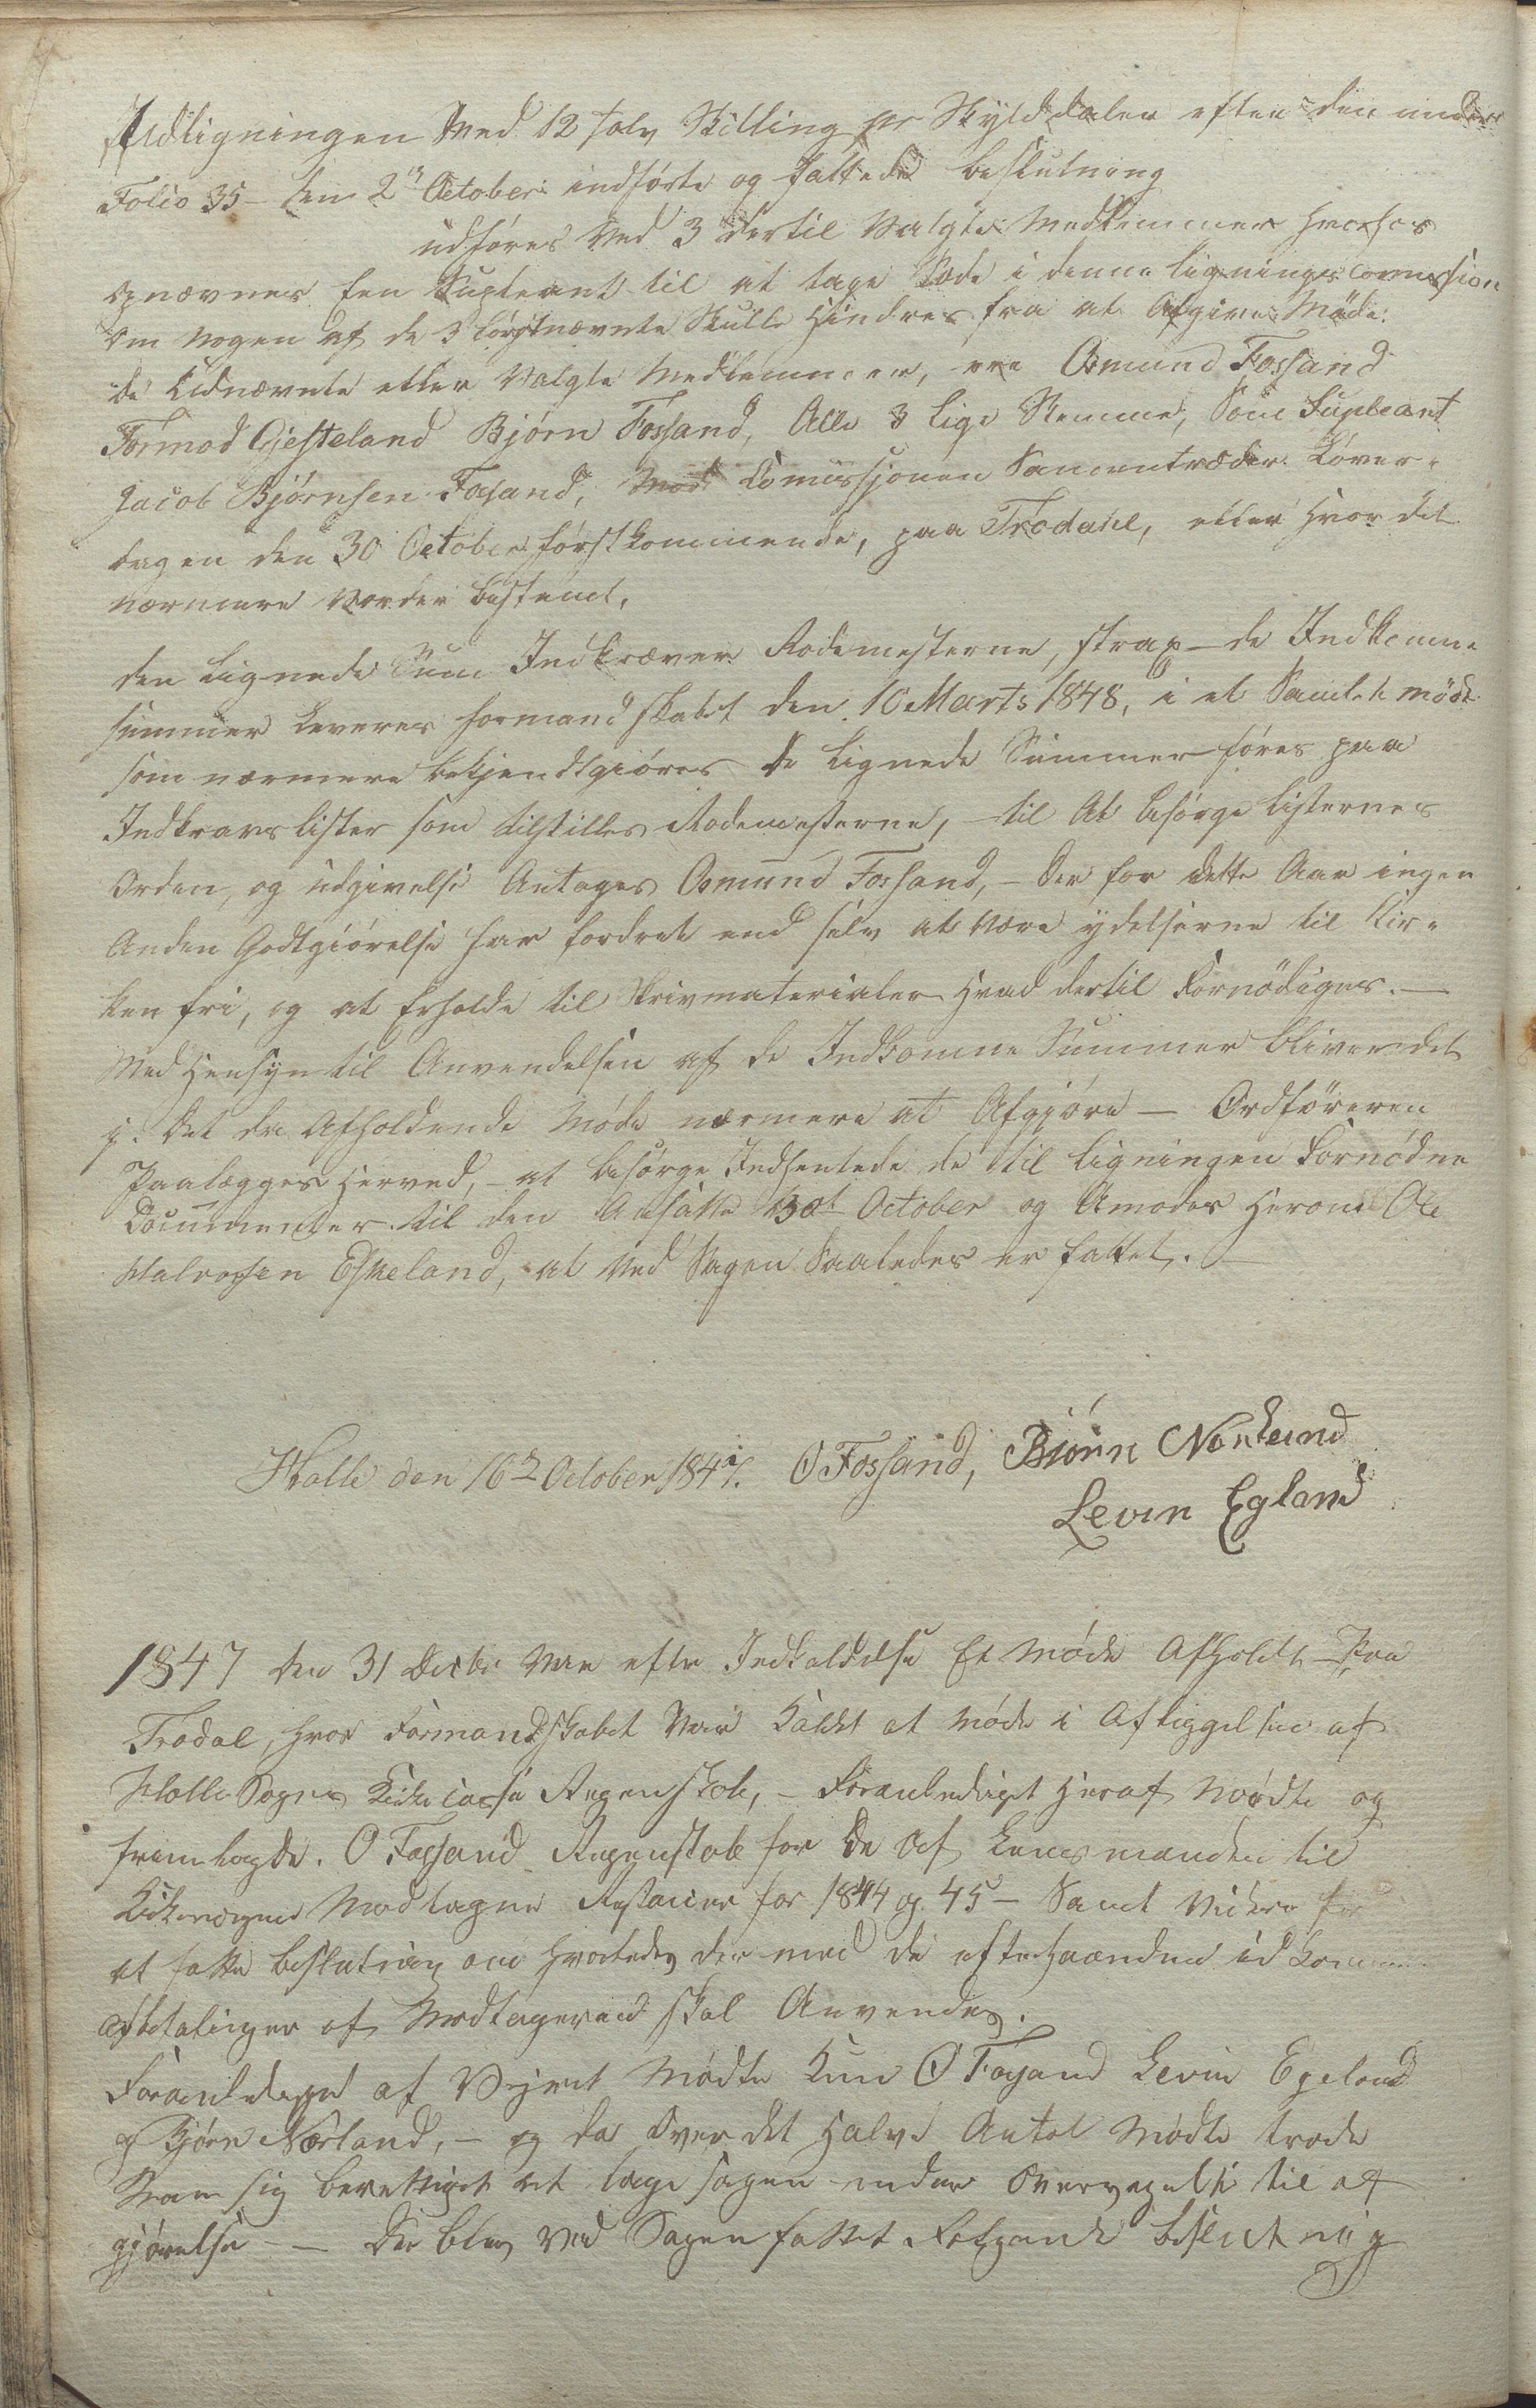 Udligningen Med 12 tolv Skilling pr Skylddaler efter den under
Folio 35 – den 2den October indførte og fattede beslutning
udføres Ved 3 dertil Valgte Medlemmer hvorhos
opnævnes een Supleant til at tage Sæde i denne ligningscomission
Om nogen af de 3 førstnævnte Skulle Hindres fra at Afgive Møde.
de Udnævnte eller Valgte Medlemmer, ere Osmund Fossand
Tormod Gjesteland Bjørn Fossand, Alle 3 lige Stemme, Som Supleant
Jacob Bjørnsen Fossand, Comissjonen Sammentræder Løver-
dagen den 30 October førstkommende, paa Trodahl, eller Hvor det
nærmere Vorder bestemt,
den lignede Sum Indkræver Rodemesterne, strax – de Indkomne
summer Leveres formandskabet den 10 Marts 1848, i et Samlet møde
som nærmere bekjendtgiøres de lignede Summer føres paa
Indkravslister som tilstilles Rodemesterne, – til At besørge listernes
Orden, og udgivelse Antages Osmund Fossand, – der for dette Aar ingen
Anden Godtgiørelse har fordret end selv at være ydelserne til Kir-
ken fri, og at Erholde til Skrivmaterialer Hvad dertil Fornødiges. –
Med Hensyn til Anvendelsen af de Indkomne Summer bliver det
i det da Afholdende Møde nærmere at Afgjøre – Ordføreren
Paalægges Herved, – at besørge Indhentede de til ligningen Fornødne
Documenter til den Ansatte 30te October og Anmodes Herom Ole
Halvorsen Eskeland, at Ved Sagen Saaledes er fattet. –
Holle den 16de October 1847. O Fossand, Biørn Nørland
Levin Egland
1847 den 31 Decbr Var efter Indkaldelse Et Møde Afholdt Paa
Trodal, hvor Formandskabet Var Kaldet at Møde i Afliggelsen af
Holle Sogns Kirke Casse Regenskab, – Foranlediget Heraf Mødte og
fremlagde O Fossand Regenskab for de Af Lensmanden til
Modtagne Restancer for 1844 og 45 – Samt Videre for
at fatte beslutning om hvorledes der med de efterhaanden
Afbetalinger af Modtageren skal Anvendes.
Foranlediget af Vejret Mødte Kun O Fossand Levin Egeland
og Bjørn Nørland, – og da Over det Halve Antal Mødte trode
Man sig berettiget at tage sagen under Overvejelse til af
gjørelse – der blev Ved Sagen fattet Følgende beslutning